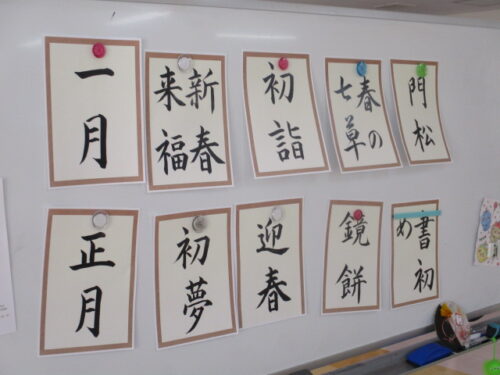 一月
新春
来福
初詣
春の
七草
門松
正月
初夢
迎春
鏡餅
書初
め